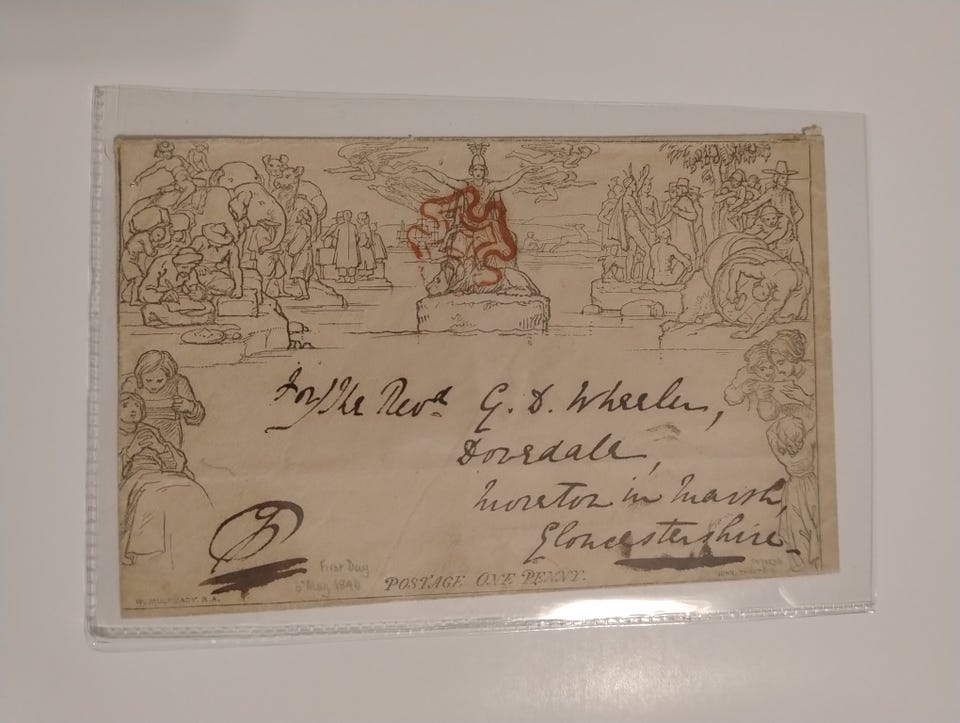 For/The Revd G. D. Wheeler,
Dovedale,
Moreton in Marsh,
Gloucestershire
First Day
6 May 1840
POSTAGE ONE PENNY.
W. MULREADY R.A.
JOHN THOMPSON